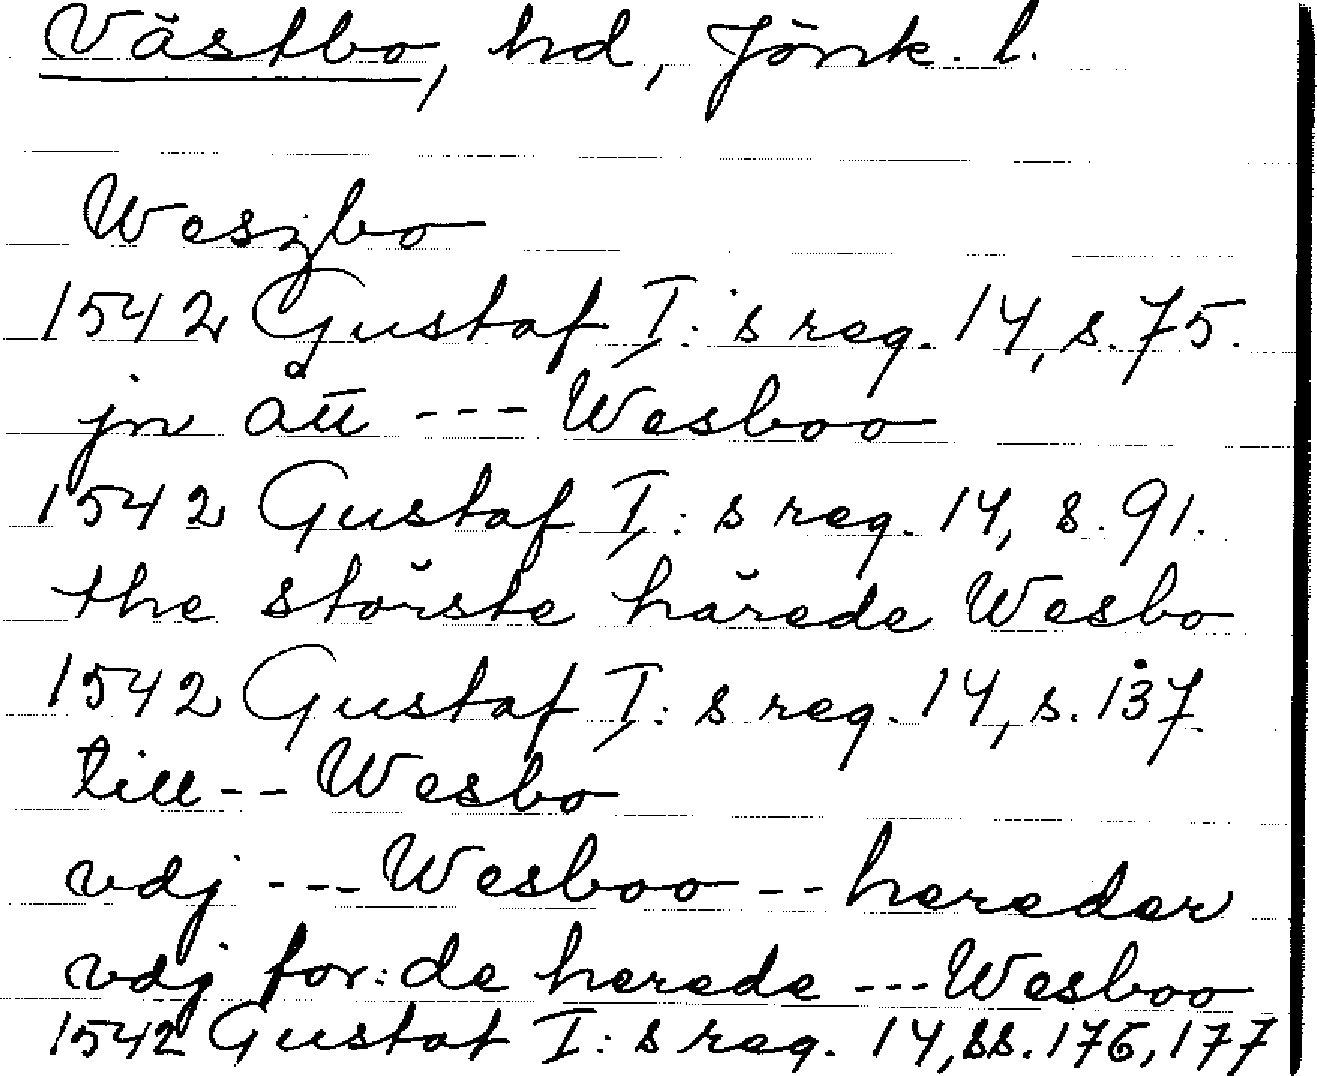 Västbo, hd, Jönk. l.
Weszbo
1542 Gustaf I:s reg. 14, s. 75.
jn ått --- Wesboo
1542 Gustaf I:s reg. 14, s. 91.
the störste härede Wesbo
1542 Gustaf I:s reg. 14, s. 137
till -- Wesbo
vdj --- Wesboo -- hereder
vdj for:de herede --- Wesboo
1542 Gustaf I:s reg. 14, ss. 176, 177